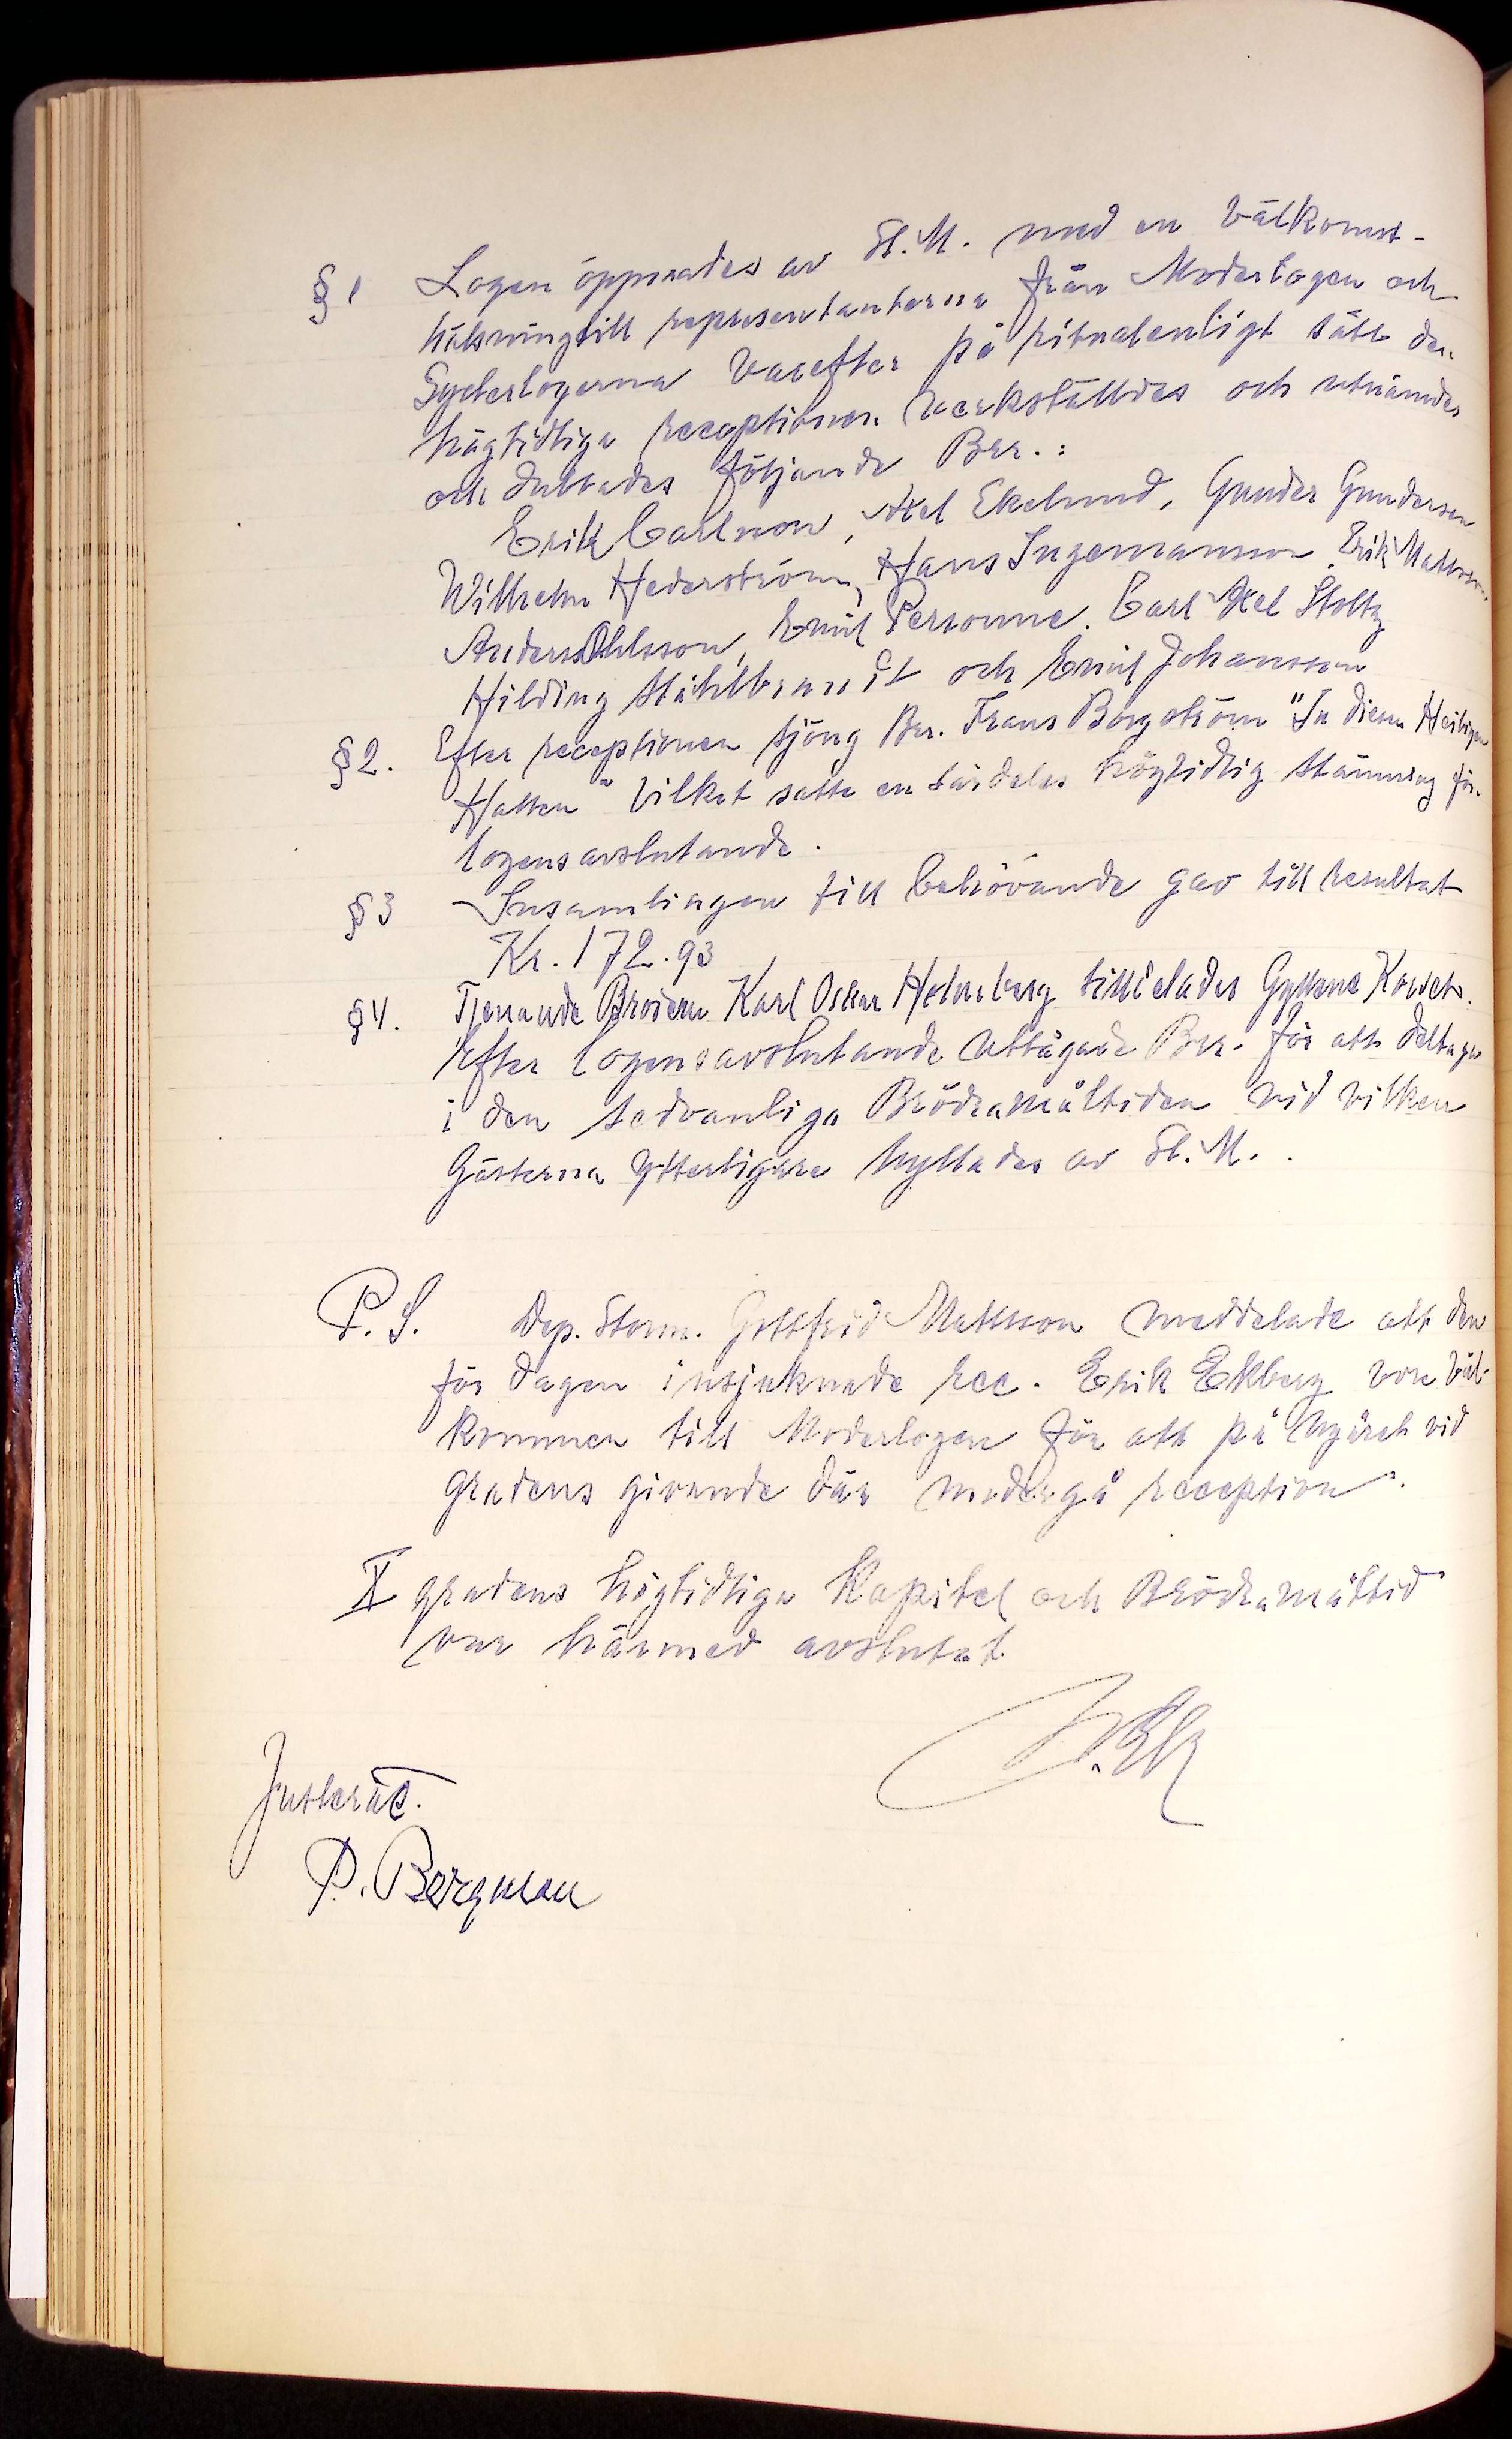 § 1 Logen öppnades av St. M. med en Välkomst-
hälsning till representanterna från Moderlogen och
Systerlogerna varefter på ritualenligt sätt den
högtidliga receptionen verkställdes och utnämndes
och dubbades följande Brr.:
Erik Carlsson, Axel Ekelund, Gunder Gundersen
Wilhelm Hederström, Hans Ingemansson, Erik Mattsson,
Anders Ohlsson, Emil Personne. Carl Axel Stoltz
Hilding Ståhlbrandt och Emil Johansson
§ 2. Efter receptionen sjöng Brr. Frans Borgström "In diesen Heiligen
Hallen" vilket satte en särdeles högtidlig stämning för
logens avslutande.
§ 3 Insamlingen till behövande gav till resultat
Kr. 172.93
§ 4. Tjenande Brodern Karl Oskar Holmberg tilldelades Gyllene Korset.
Efter logens avslutande uttågade Brr. för att deltaga
i den sedvanliga Brödramåltiden vid vilken
Gästerna ytterligare hyllades av St. M.
P. S. Dep. Storm. Gottfrid Mattsson meddelade att den
för dagen insjuknade rec. Erik Ekberg vore väl-
kommen till Moderlogen för att på nyåret vid
gradens givande där undergå reception.
X gradens högtidliga Kapitel och Brödramåltid
var härmed avslutat.
Justerat.
P. Bergman